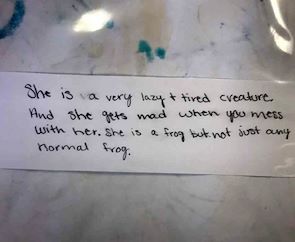 She is a very lazy + tired creature.
And she gets mad when you mess
with her. She is a frog but not just any
normal frog.